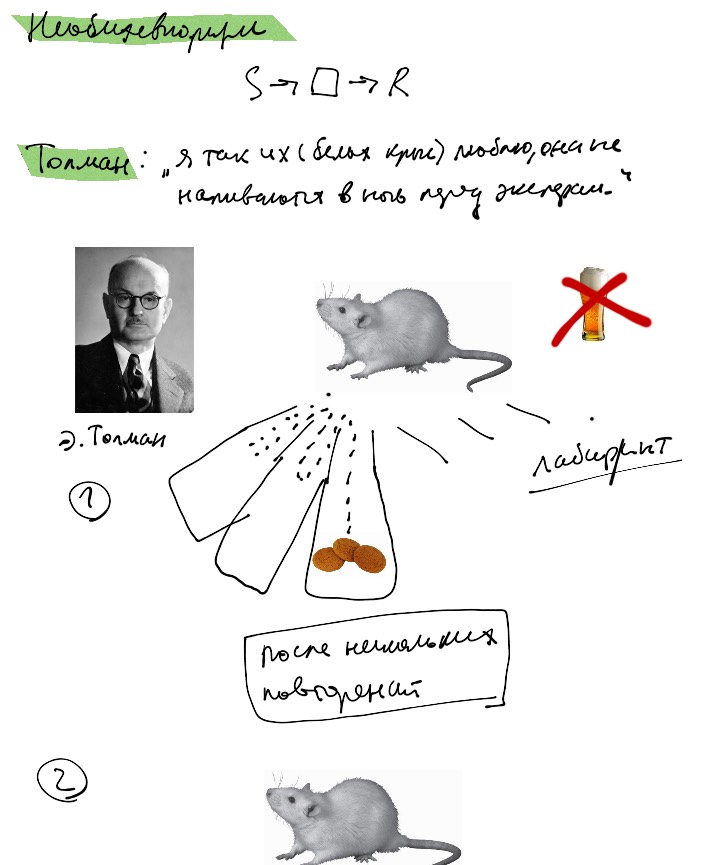 Необихевиоризм
S → □ → R
Толман: „я так их (белых крыс) люблю, они не
напиваются в ночь перед эксперим."
Э. Толман
лабиринт
1
после нескольких
повторений
2